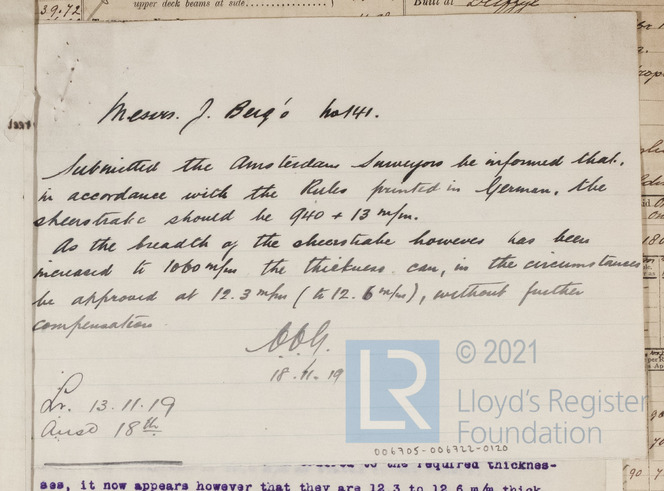 39.72
upper deck beams at side
Built at Delfzyl
Messrs. J. Berg's No 141.
Submitted the Amsterdam Surveyors be informed that,
in accordance with the Rules printed in German, the
sheerstrake should be 940 + 13 m/m.
As the breadth of the sheerstrake however has been
increased to 1060 m/m the thickness can, in the circumstances
be approved at 12.3 m/m (to 12.6 m/m), without further
compensation
18.11.19
Lr. 13.11.19
Ansd 18th
LR
© 2021
Lloyd's Register
Foundation
006705-006722-0120
to the required thicknes-
ses, it now appears however that they are 12.3 to 12.6 m/m thick